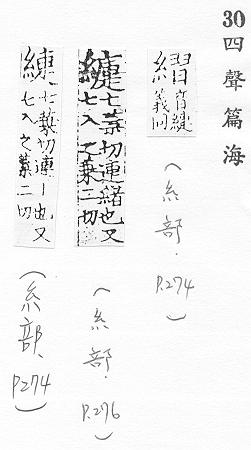 30 四聲篇海
音
義同
(糸部. P.274)
七葉切連緒也又
七入 葉二切
(糸部. P.276)
七葉切連丨也又
七入之葉二切
(糸部. P274)